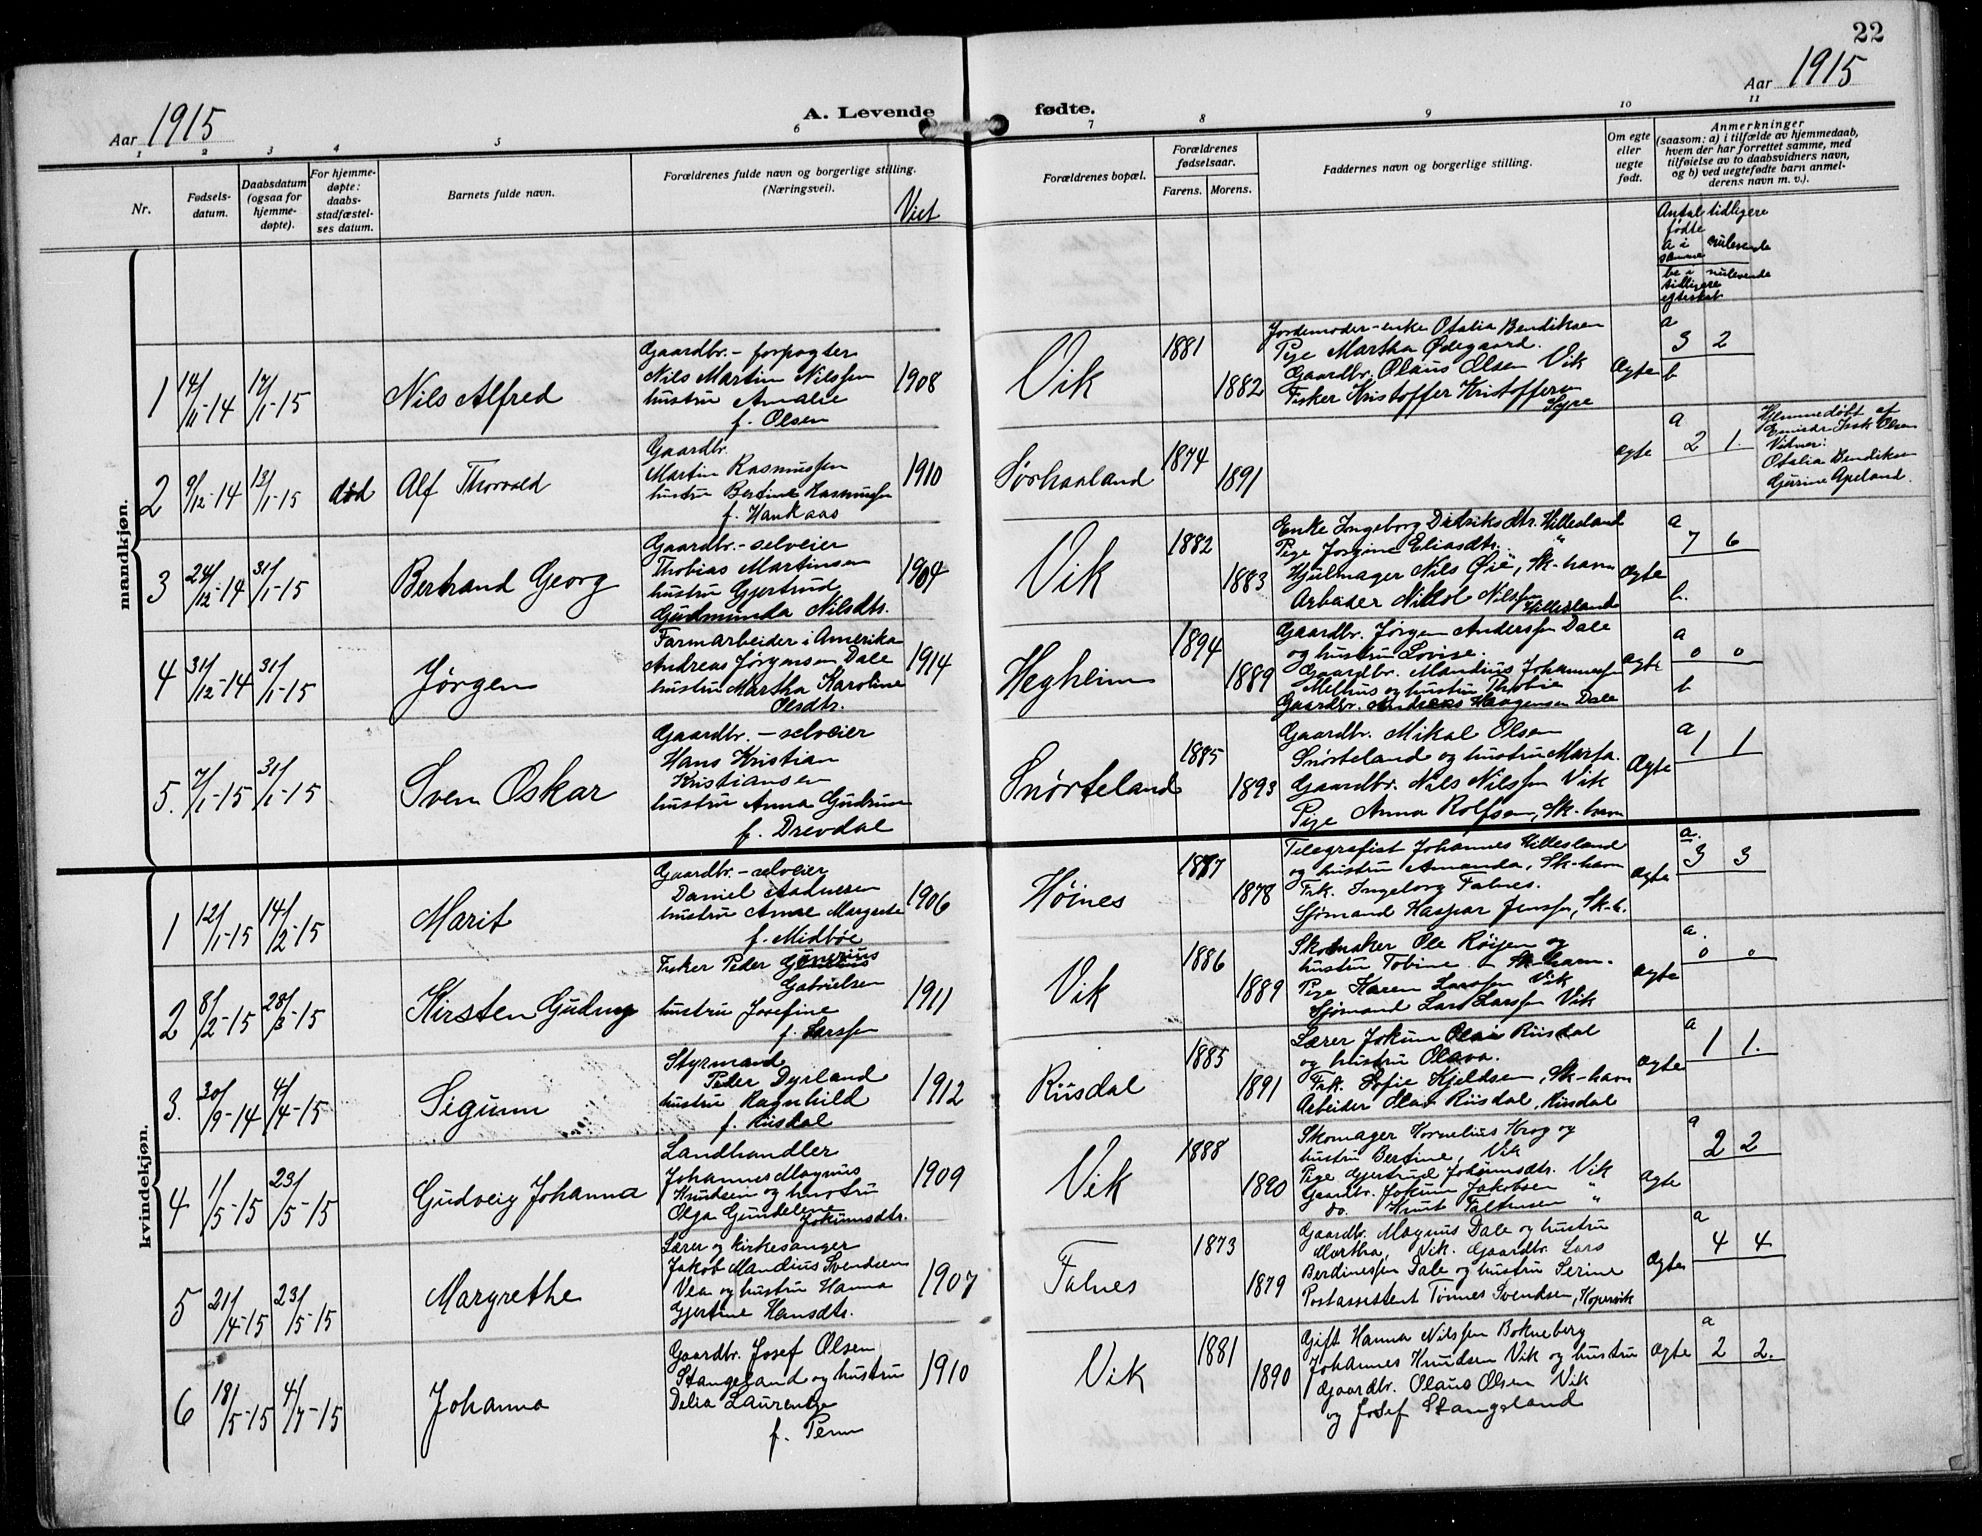 22
Aar 1915
A. Levende
fødte.
Aar 1915
1 2 3 4 5 6 7 8 9 10 11
Nr.
Fødsels-
datum.
Daabsdatum
(ogsaa for
hjemme-
døpte).
For hjemme-
døpte:
daabs-
stadfæstel-
ses datum.
Barnets fulde navn.
Forældrenes fulde navn og borgerlige stilling.
(Næringsvei).
Viet
Forældrenes bopæl.
Forældrenes
fødselsaar.
Farens. Morens.
Faddernes navn og borgerlige stilling.
Om egte
eller
uegte
født.
Anmerkninger
(saasom: a) i tilfælde av hjemmedaab,
hvem der har forrettet samme, med
tilføielse av to daabsvidners navn,
og b) ved uegtefødte barn anmel-
derens navn m. v.).
Antal tidligere
fødte
a i nulevende
samme
b i nulevende
tidligere
egteskab
mandkjøn.
1 14/11-14 17/1-15 Nils Alfred
Gaardbr.- forpagter
Nils Martin Nilssen
hustru Amalie
f. Olsen
1908
Vik
1881
1882
Jordemoder-enke Otalia Bendiksen
Pige Martha Ødegaard.
Gaardbr. Olaus Olsen Vik
Fisker Kristoffer Kristoffersen
Syre
Ægte
a
3 2
b
2 9/12-14 13/1-15 død Alf Thorvald
Gaardbr.
Martin Rasmussen
hustru Bertine Rasmussen
f. Haukaas
1910
Sørhaaland
1874
1891
ægte
a
2 1.
Hjemmedøbt af
Vidner:
Otalia Bendiksen
Gurine Apeland.
3 24/12-14 31/1-15 Bertrand Georg
Gaardbr.- selveier
Thobias Martinsen
hustru Gjertrud
Gudmunda Nilsdtr.
1904
Vik
1882
1883
Enke Ingeborg Didriksdtr. Hillesland
Pige Jorgine Eliasdtr. "
Hjulmager Nils Øie, Sk-havn
Arbeider Nikol Nilssen
Hillesland
Ægte
a
7 6
b.
4 31/12-14 31/1-15 Jørgen
Farmarbeider i Amerika
Andreas Jørgensen Dale
hustru Martha Karoline
Olsdtr.
1914
Hegheim
1894
1889
Gaardbr. Jørgen Anderssen Dale
og hustru Lovise.
Gaardbr. Mandius Johannessen
Melhus og hustru Thobie
Gaardbr. Andreas Haagensen Dale
ægte
a
0 0
b
5. 7/1-15 31/1-15 Sven Oskar
Gaardbr. - selveier
Hans Kristian
Kristiansen
hustru Anna Gudrun
f. Drevdal
Snørteland
1885
1893
Gaardbr. Mikal Olsen
Snørteland og hustru Marta.
Gaardbr. Nils Nilssen Vik
Pige Anna Rolfsen, Sk-havn
Ægte
a
1 1
kvindekjøn.
1 12/1-15 14/2-15 Marit
Gaardbr.- selveier
Daniel Aadnesen
hustru Anne Margrete
f. Midbøe
1906
Høines
1877
1878
Telegrafist Johannes Hillesland
og hustru Amanda, Sk-havn
Frk. Ingeborg Falnes.
Sjømand Kaspar Jenssen, Sk-h.
Ægte
a.
3 3
2 8/2-15 28/3-15 Kirsten Gudny
Fisker Peder
Gabrielsen
hustru Josefine
f. Larssen
1911
Vik
1886
1889
Skomaker Ole Røisen og
hustru Tobine - Sk-havn.
Pige Karen Larssen Vik
Sjømand Lars Larssen Vik
ægte
a.
0 0
3. 30/9-14 4/4-15 Sigunn
Styrmand
Peder Dyrland
hustru Ragnhild
f. Riisdal
1912
Riisdal
1885
1891
Lærer Jokum Olai Riisdal
og hustru Olava.
Frk. Sofie Kjeldsen, Sk-havn
Arbeider Olav Riisdal, Riisdal
ægte
a
1 1.
4 1/5-15 23/5-15 Gudveig Johanna
Landhandler
Johannes Magnus
Knudsen og hustru
Olga Gundelene
Jokumsdtr.
1909
Vik
1888
1890
Skomager Kornelius Krog og
hustru Bertine, Vik
Pige Gjertrud Jokumsdtr. Vik
Gaardbr. Jokum Jakobsen "
do. Knut Faltinsen "
Ægte
a
2 2
5 21/4-15 23/5-15 Margrethe
Lærer og kirkesanger
Jakob Mandius Svendsen
Vea og hustru Hanna
Gjertine Hansdtr.
1907
Falnes
1873
1879
Gaardbr. Magnus Dale og hustru
Martha, Vik. Gaardbr. Lars
Berdinessen Dale og hustru Serine
Postassistent Tønnes Svendsen, Kopervik
Ægte
a
4 4
6 18/5-15 4/7-15 Johanna
Gaardbr. Josef Olsen
Stangeland og hustru
Delia Laurentze
f.
1910
Vik
1881
1890
Gift Hanna Nilssen Bokneberg
Johannes Knudsen Vik og hustru
Gaardbr. Olaus Olsen Vik
og Josef Stangeland
Ægte
a
2 2.